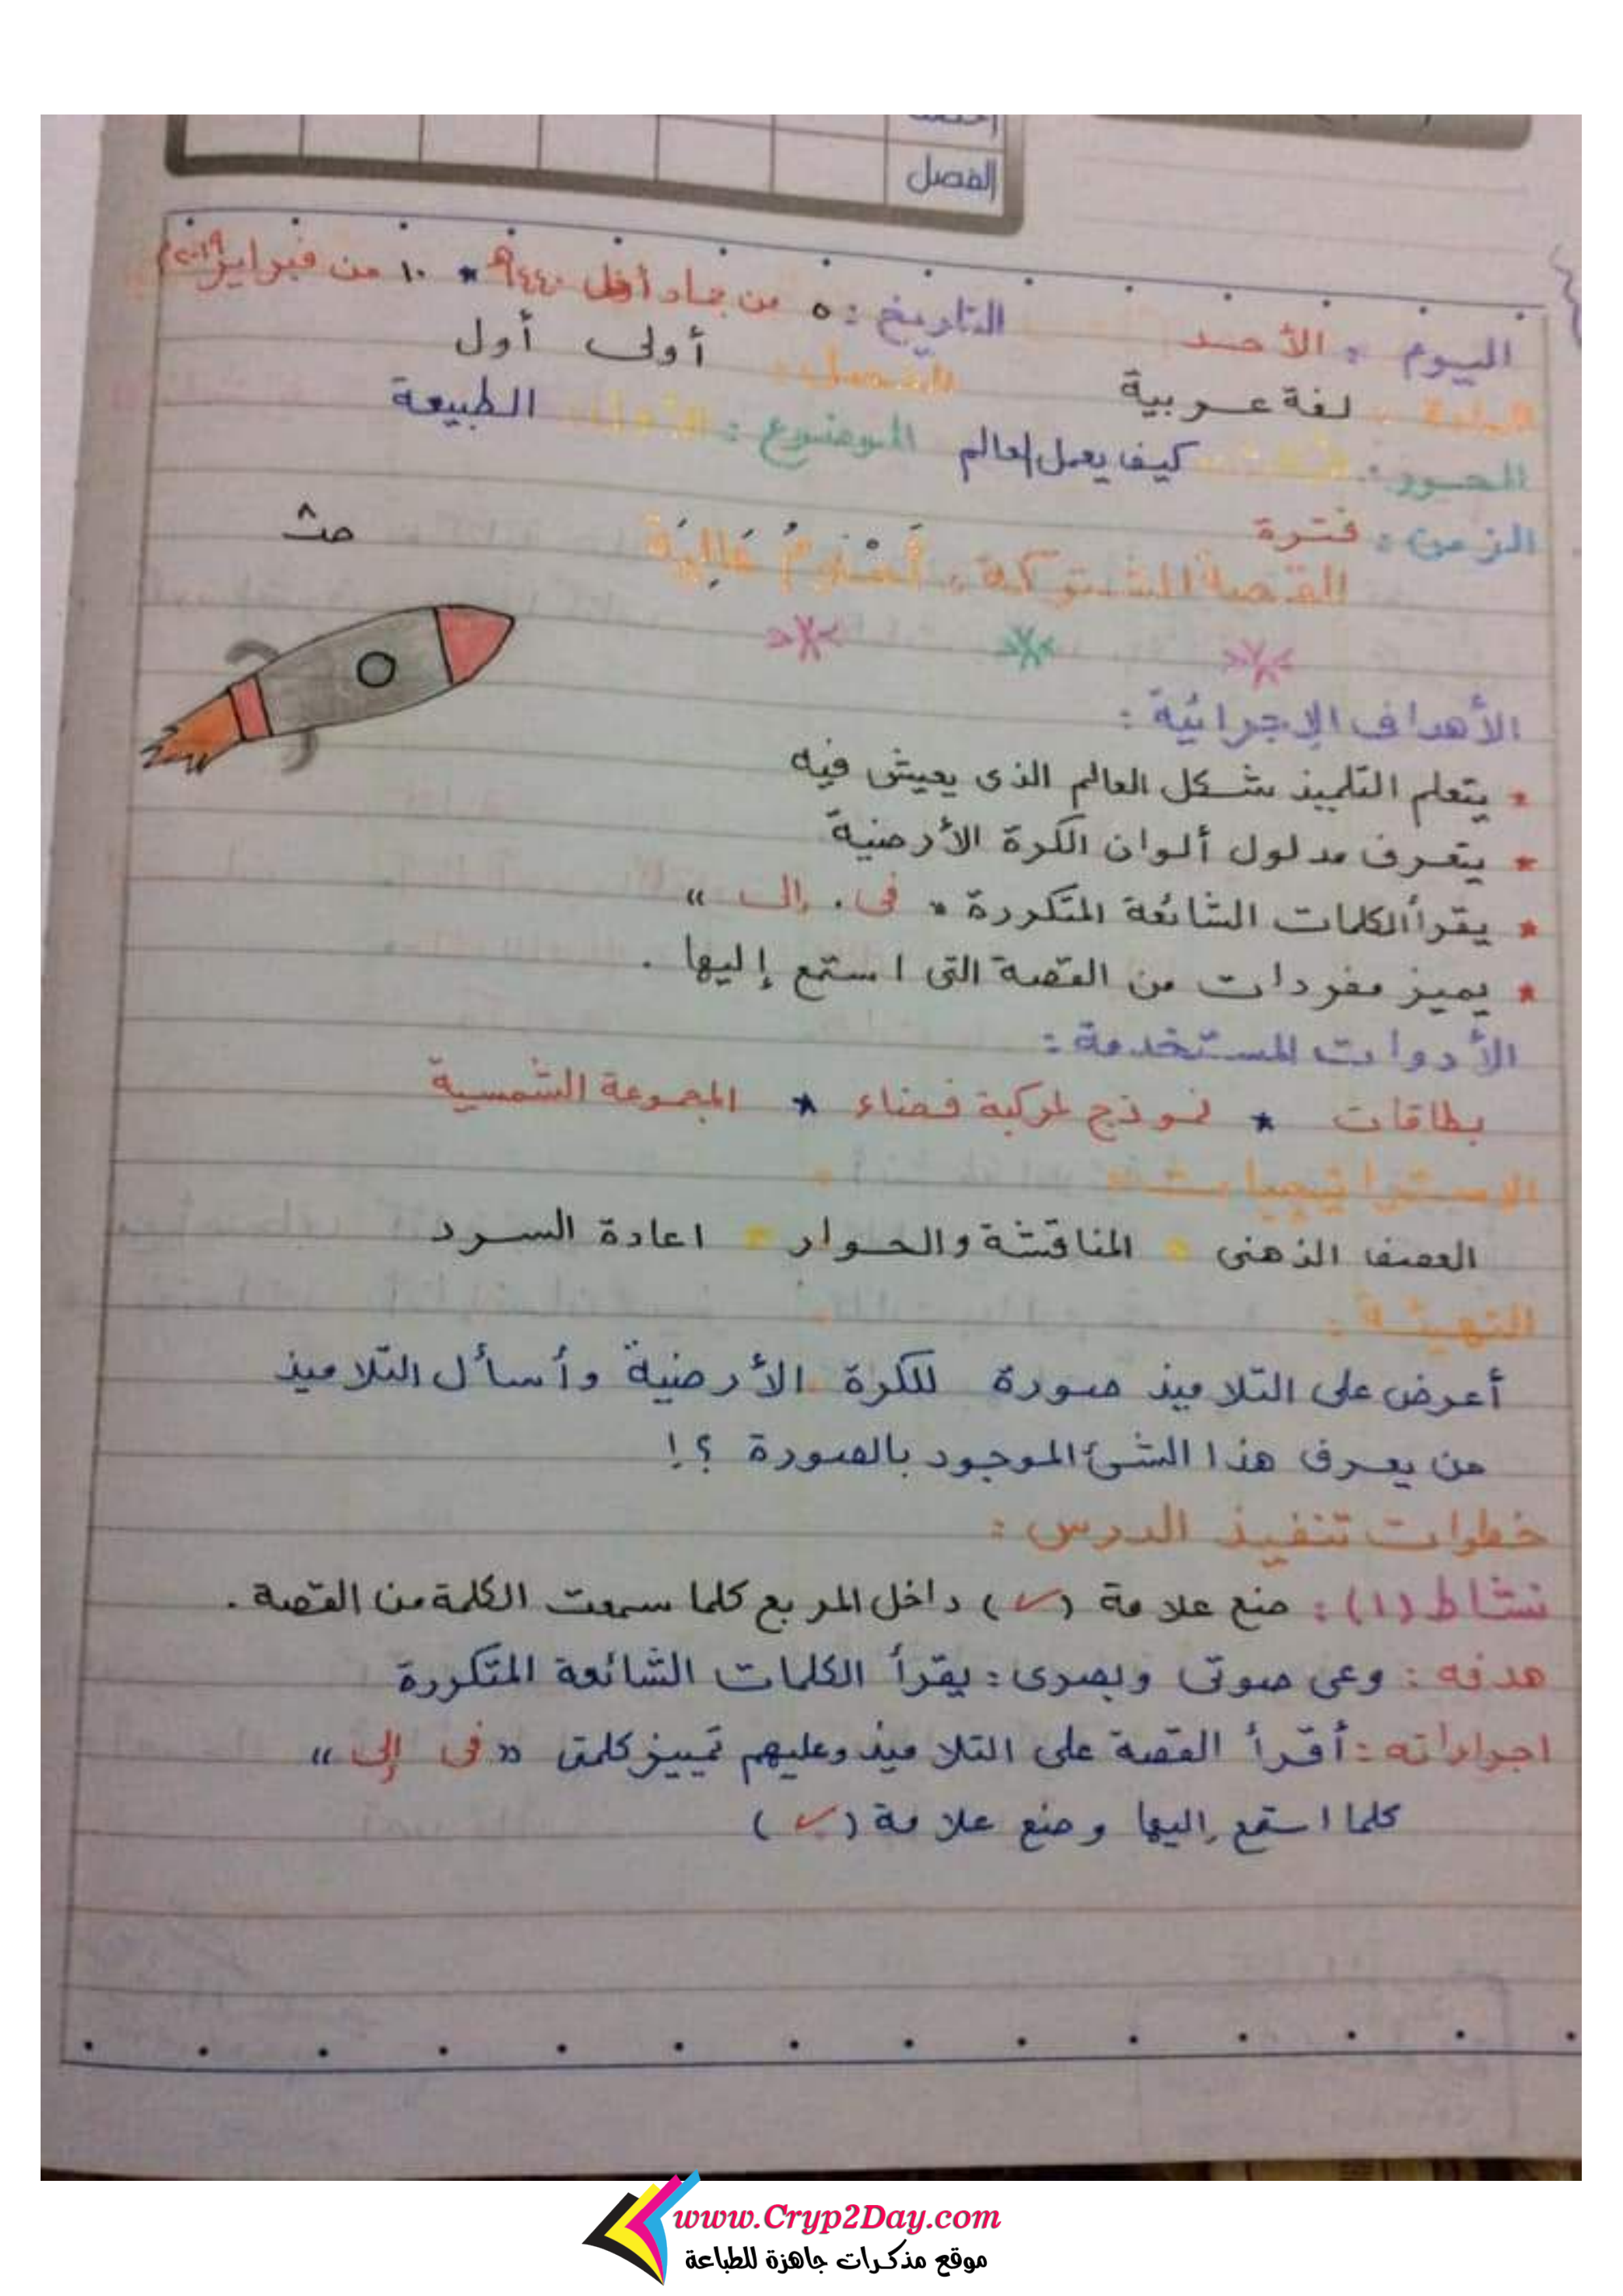 الفصل
اليوم : الأحد التاريخ : ٥ من جماد أول ١٤٤٠هـ * ١٠ من فبراير ٢٠١٩م
المادة : لغة عربية الفصل : أولى أول
المحور : كيف يعمل العالم الموضوع : الطبيعة
الزمن : فترة
القصة المشتركة :
الأهداف الإجرائية :
* يتعلم التلميذ شكل العالم الذى يعيش فيه
* يتعرف مدلول ألوان الكرة الأرضية
* يقرأ الكلمات الشائعة المتكررة " فى . إلى "
* يميز مفردات من القصة التى استمع إليها .
الأدوات المستخدمة :
بطاقات * نموذج لمركبة فضاء * المجموعة الشمسية
الاستراتيجيات :
العصف الذهنى * المناقشة والحوار * اعادة السرد
التهيئة :
أعرض على التلاميذ صورة للكرة الأرضية وأسأل التلاميذ
من يعرف هذا الشئ الموجود بالصورة ؟!
خطوات تنفيذ الدرس :
نشاط (١) : ضع علامة (✓) داخل المربع كلما سمعت الكلمة من القصة .
هدفه : وعى صوتى وبصرى : يقرأ الكلمات الشائعة المتكررة
اجراءاته : أقرأ القصة على التلاميذ وعليهم تمييز كلمتى " فى إلى "
كلما استمع إليها وضع علامة (✓)
www.Cryp2Day.com
موقع مذكرات جاهزة للطباعة